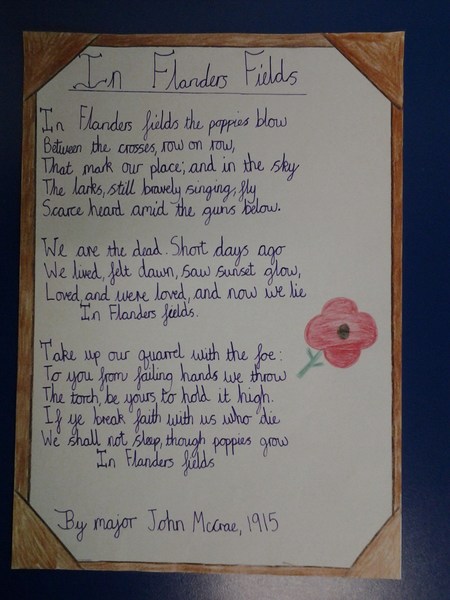 In Flanders Fields
In Flanders fields the poppies blow
Between the crosses, row on row,
That mark our place; and in the sky
The larks, still bravely singing, fly
Scarce heard amid the guns below.
We are the dead. Short days ago
We lived, felt dawn, saw sunset glow,
Loved, and were loved, and now we lie
In Flanders feelds.
Take up our quarrel with the foe:
To you from failing hands we throw
The torch, be yours to hold it high.
If ye break faith with us who die
We shall not sleep, though poppies grow
In Flanders fields
By major John McCrae, 1915